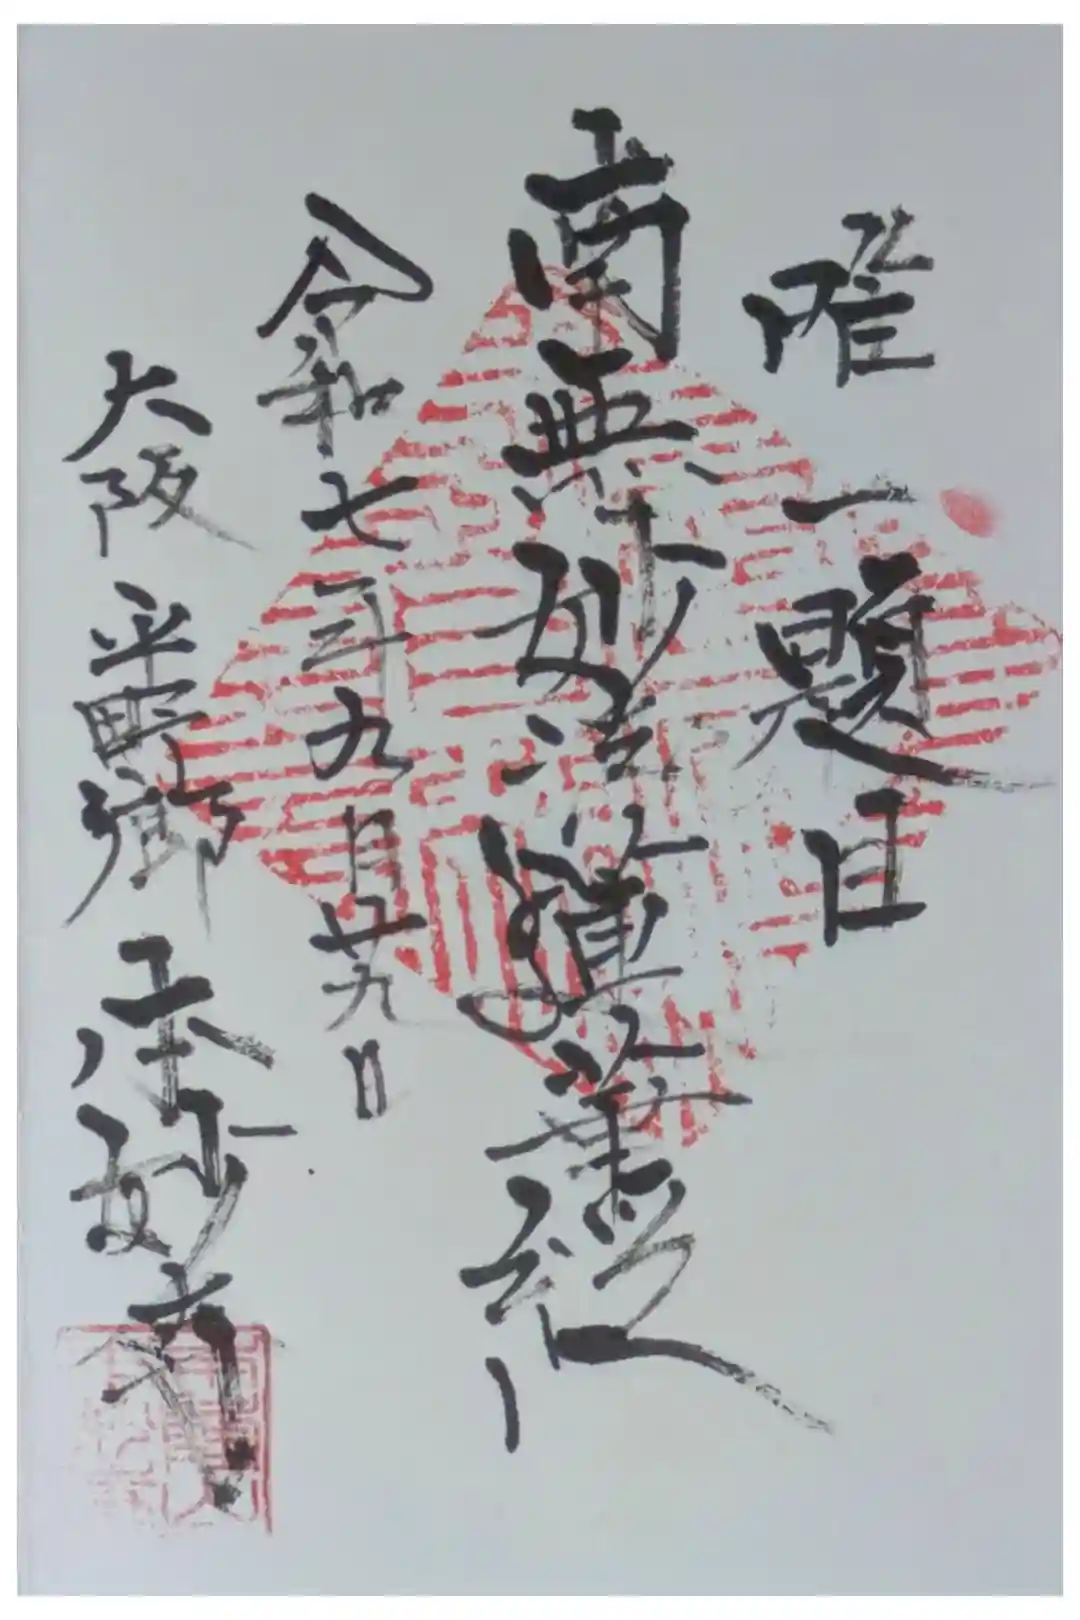 唯一題目
南無妙法蓮華経
令和七年九月廿九日
大阪平野郷本妙寺